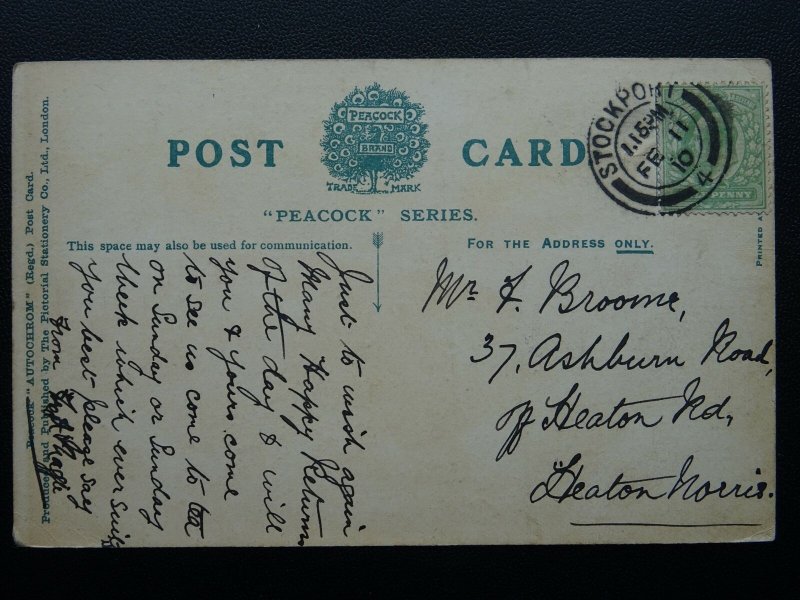 POST CARD
PEACOCK
BRAND
TRADE MARK
"PEACOCK" SERIES.
This space may also be used for communication.
FOR THE ADDRESS ONLY.
STOCKPORT
1.15PM
FE 11
10
4
PENNY
PRINTED
Peacock "AUTOCHROM" (Regd.) Post Card.
Produced and Published by The Pictorial Stationery Co., Ltd., London.
Just to wish again
Many Happy Returns
of the day & will
you & yours come
to see us come to tea
on Sunday or Sunday
week which ever suits
you best please say
from
Mr. F. Broome,
37, Ashburn Road,
off Heaton Rd,
Heaton Norris.